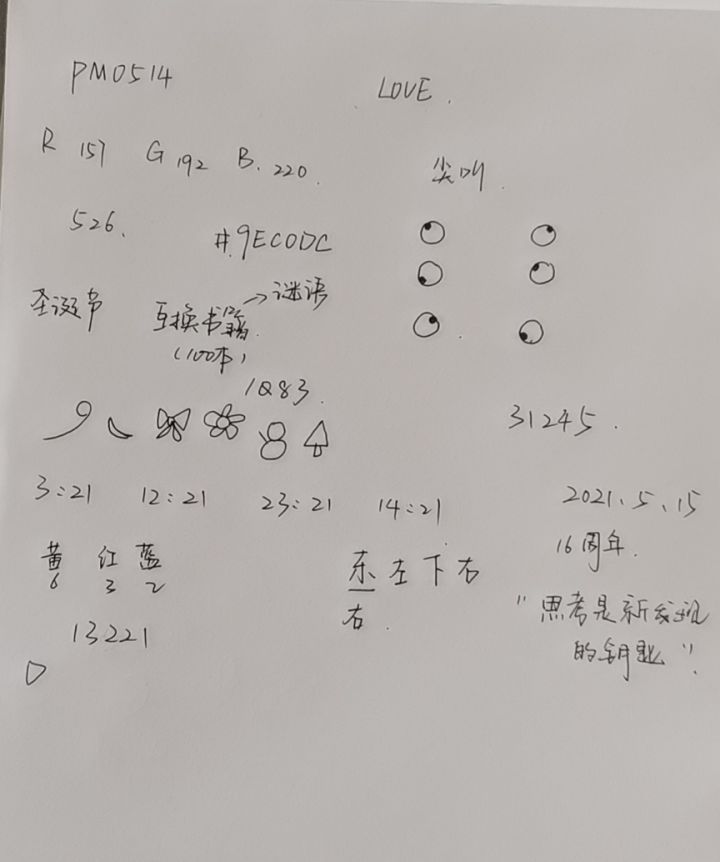 PM0514
LOVE.
R 157 G 192 B. 220.
尖叫.
526.
#9EC0DC
圣诞节
互换书籍. →谜语
(100本)
1Q83.
31245.
3:21 12:21 23:21 14:21
2021.5.15
16周年.
黄 红 蓝
6 3 2
东左下右
右.
13221
"思考是新发现
的钥匙".